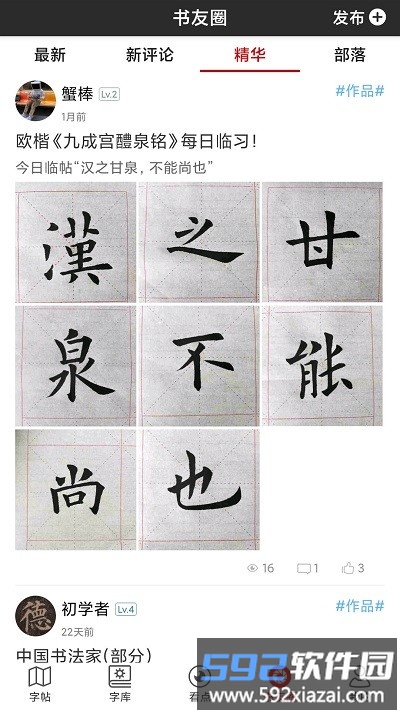 书友圈
发布
最新 新评论 精华 部落
蟹棒 Lv.2 #作品#
1月前
欧楷《九成宫醴泉铭》每日临习！
今日临帖“汉之甘泉，不能尚也”
漢 之 甘
泉 不 能
尚 也
16 1 3
初学者 Lv.4 #作品#
德
22天前
中国书法家(部分)
592软件园
字帖 字库 看点
www.592xiazai.com